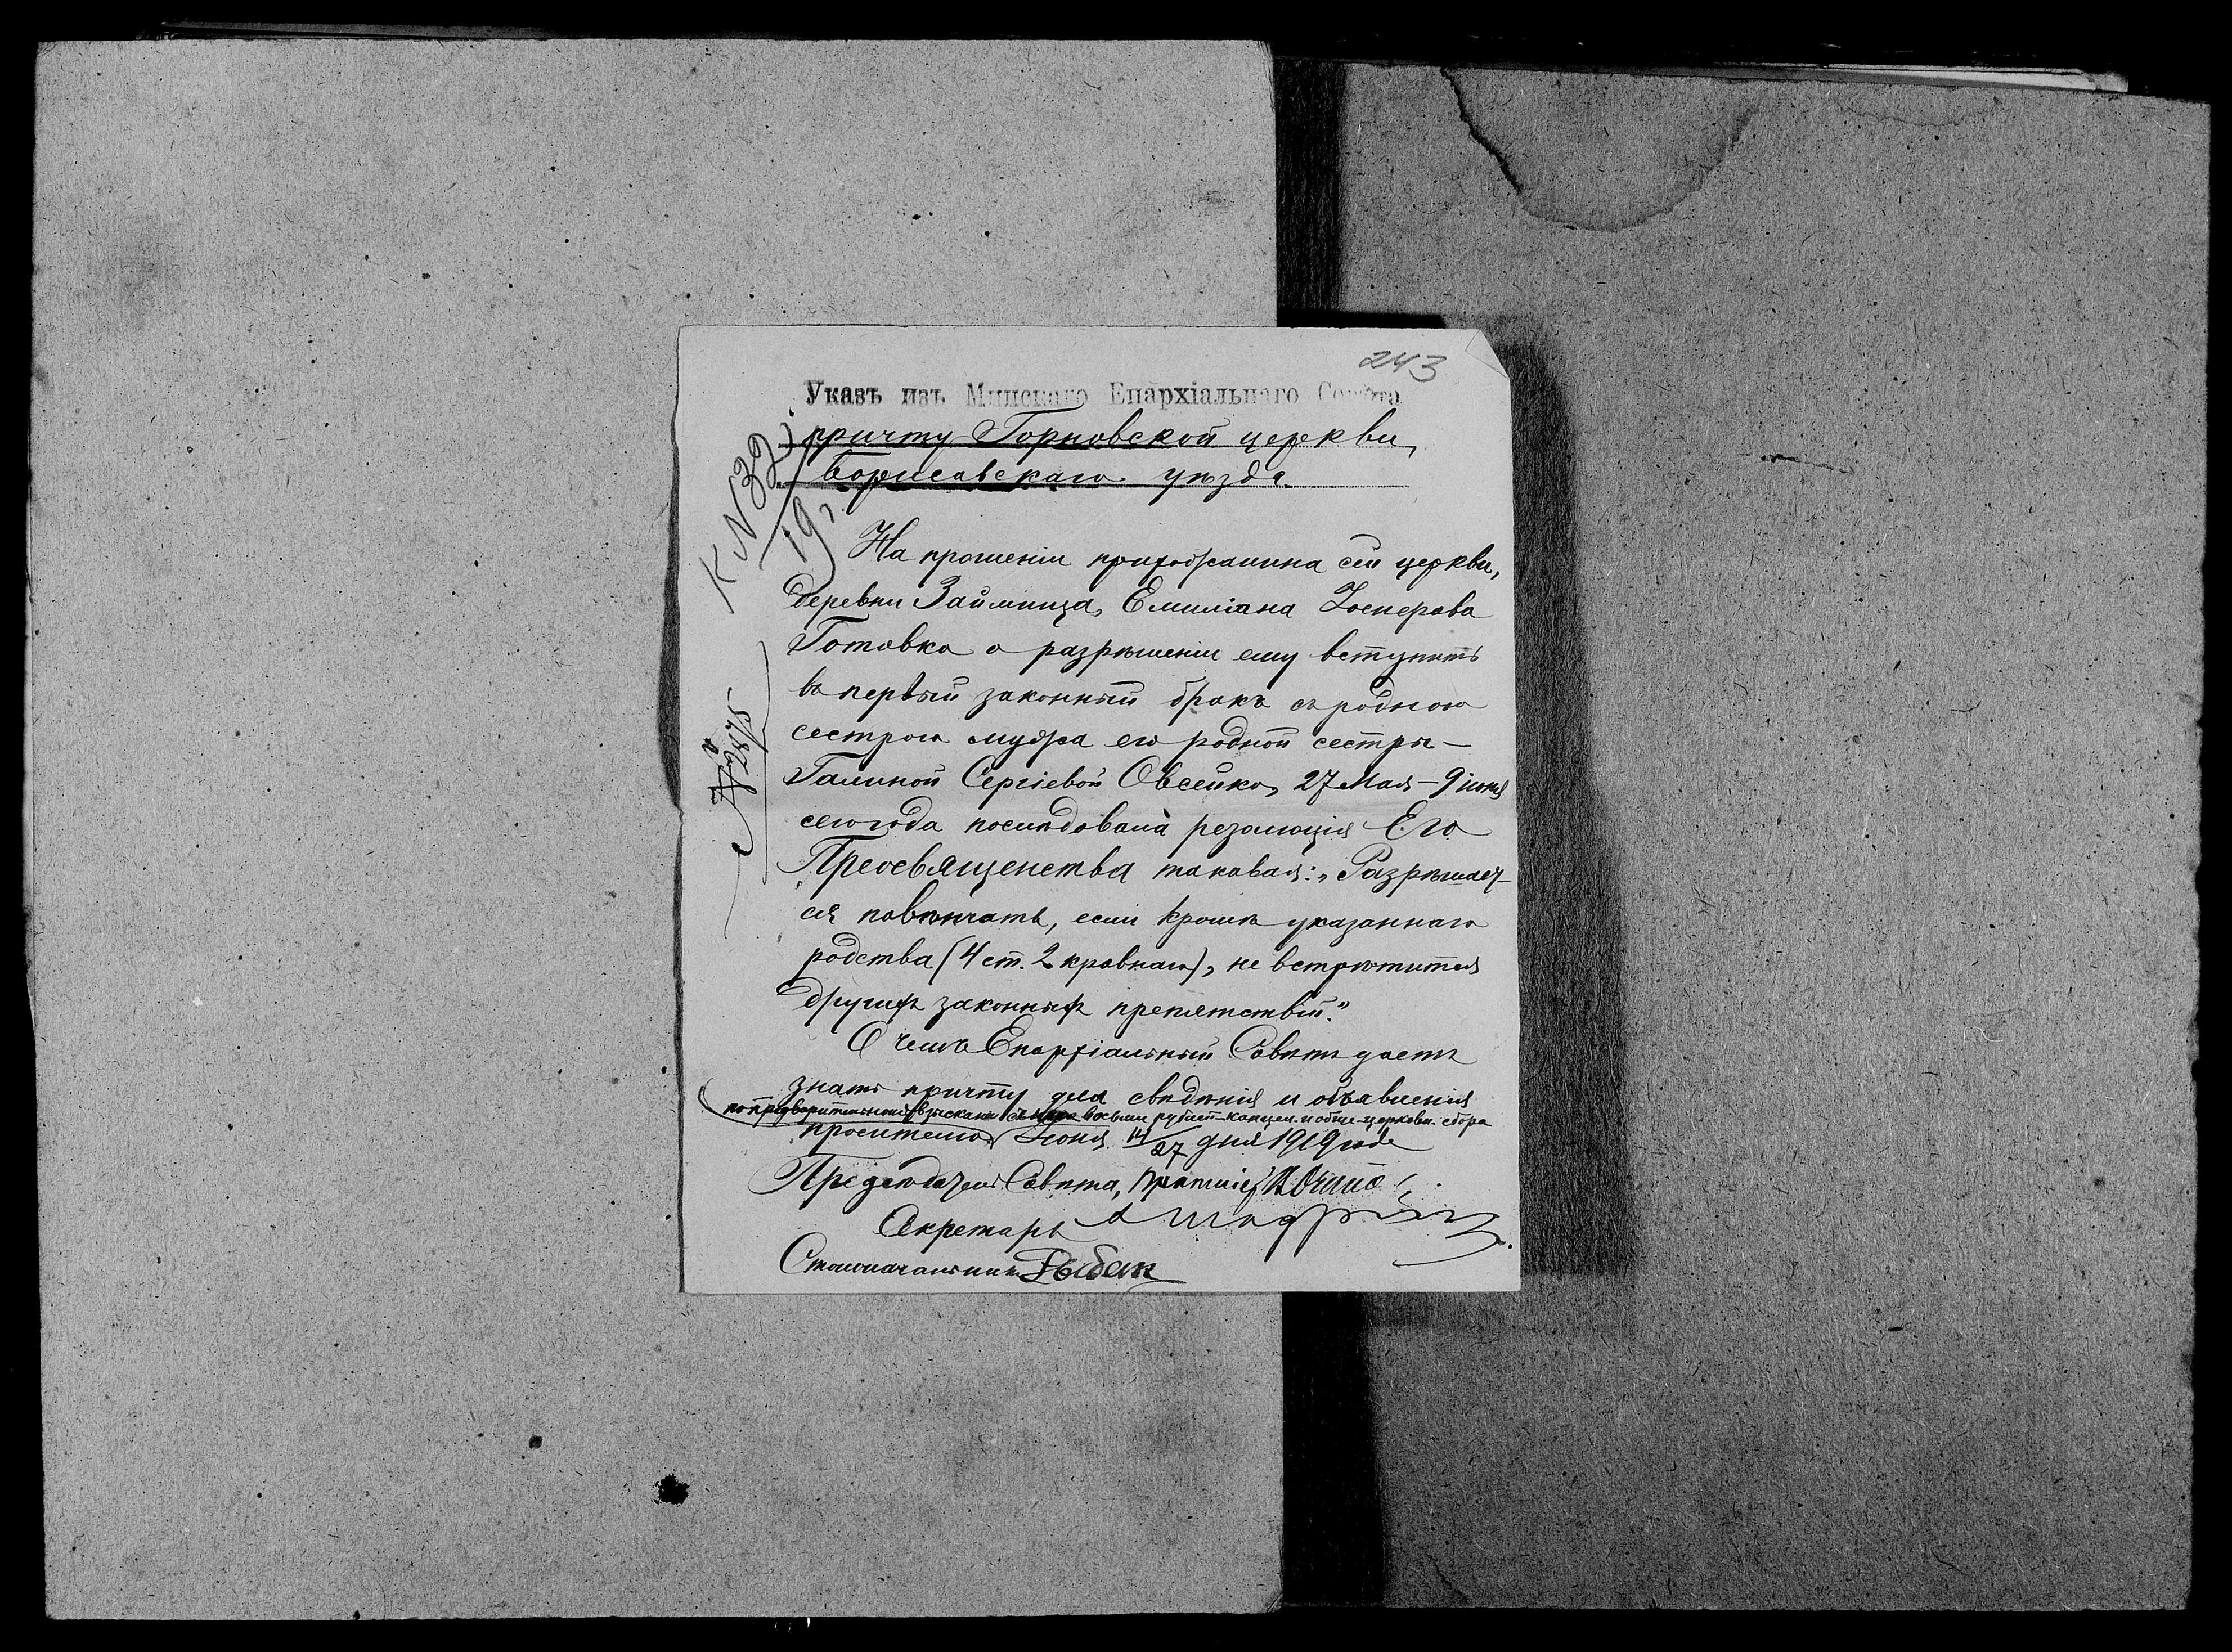 243
Указъ изъ Минскаго Епархіальнаго Совѣта
причту Горковской церкви,
Борисовскаго уѣзда.
К № 32
19 г.
На прошеніи прихожанина сей церкви,
деревни Займища, Емиліана
Готовко о разрѣшеніи ему вступить
въ первый законный бракъ съ родною
сестрою мужа его родной сестры —
Галиной Сергіевой Овсейко, 27 Мая – 9 іюня
сего года послѣдовала резолюція Его
Преосвященства таковая: „Разрѣшает-
ся повѣнчать, если кромѣ указаннаго
родства (4 ст. 2 кровнаго), не встрѣтится
другихъ законныхъ препятствій."
О чемъ Епархіальный Совѣтъ даетъ
знать причту для свѣдѣнія и объявленія
по предварительномъ взысканіи съ него восьми рублей канцел. и обще-церковн. сбора
просителю. Іюня 14/27 дня 1919 года
Предсѣдатель Совѣта, Протоіер.
Секретарь
Столоначальникъ Рыбак
№ 2875